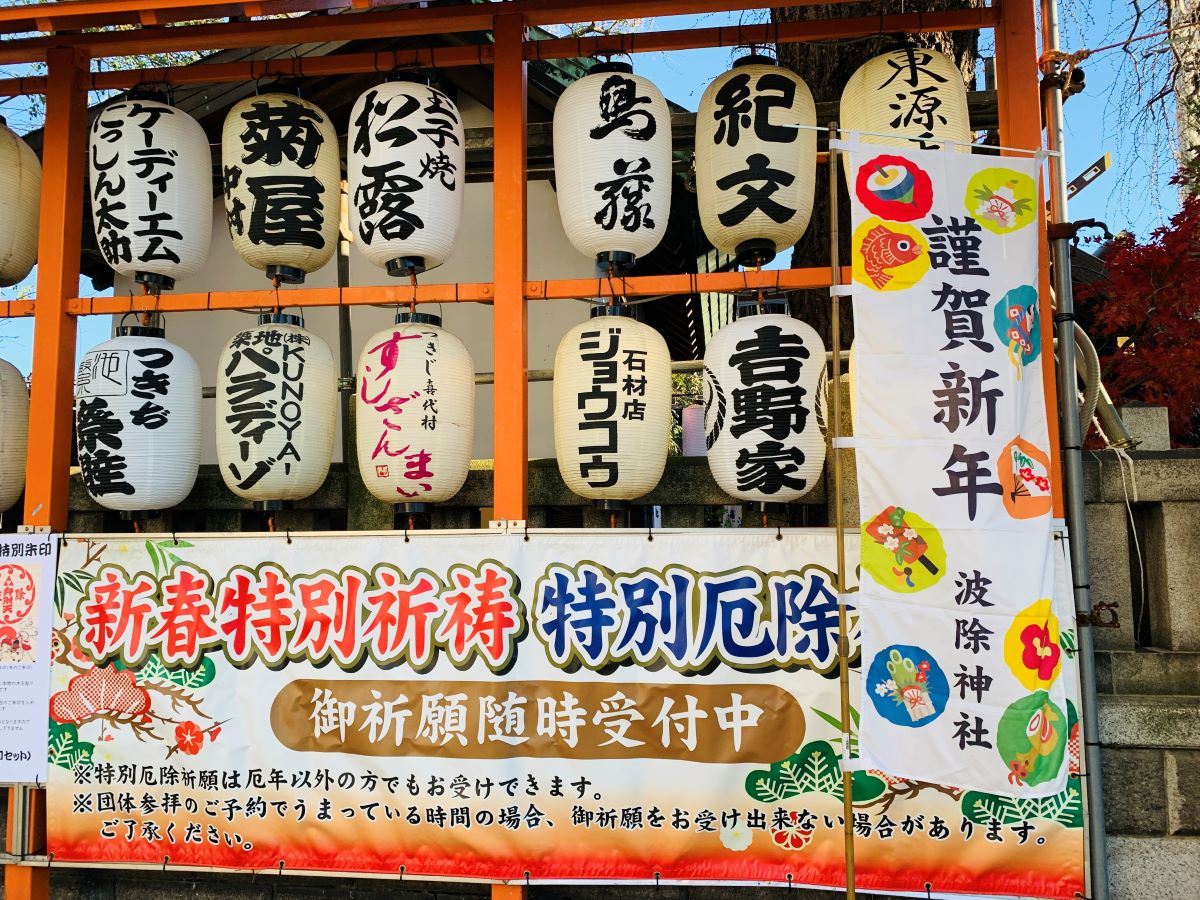 ケーディーエム
にっしん太助
菊屋
中村
玉子焼
松露
鳥藤
紀文
東源
つきぢ
築産
池
築地
㈱KUNOYA
パラディーゾ
つきじ喜代村
すしざんまい
石材店
ジョウコウ
吉野家
謹賀新年
波除神社
特別朱印
新春特別祈祷 特別厄除
御祈願随時受付中
※特別厄除祈願は厄年以外の方でもお受けできます。
※団体参拝のご予約でうまっている時間の場合、御祈願をお受け出来ない場合があります。
ご了承ください。
セット)